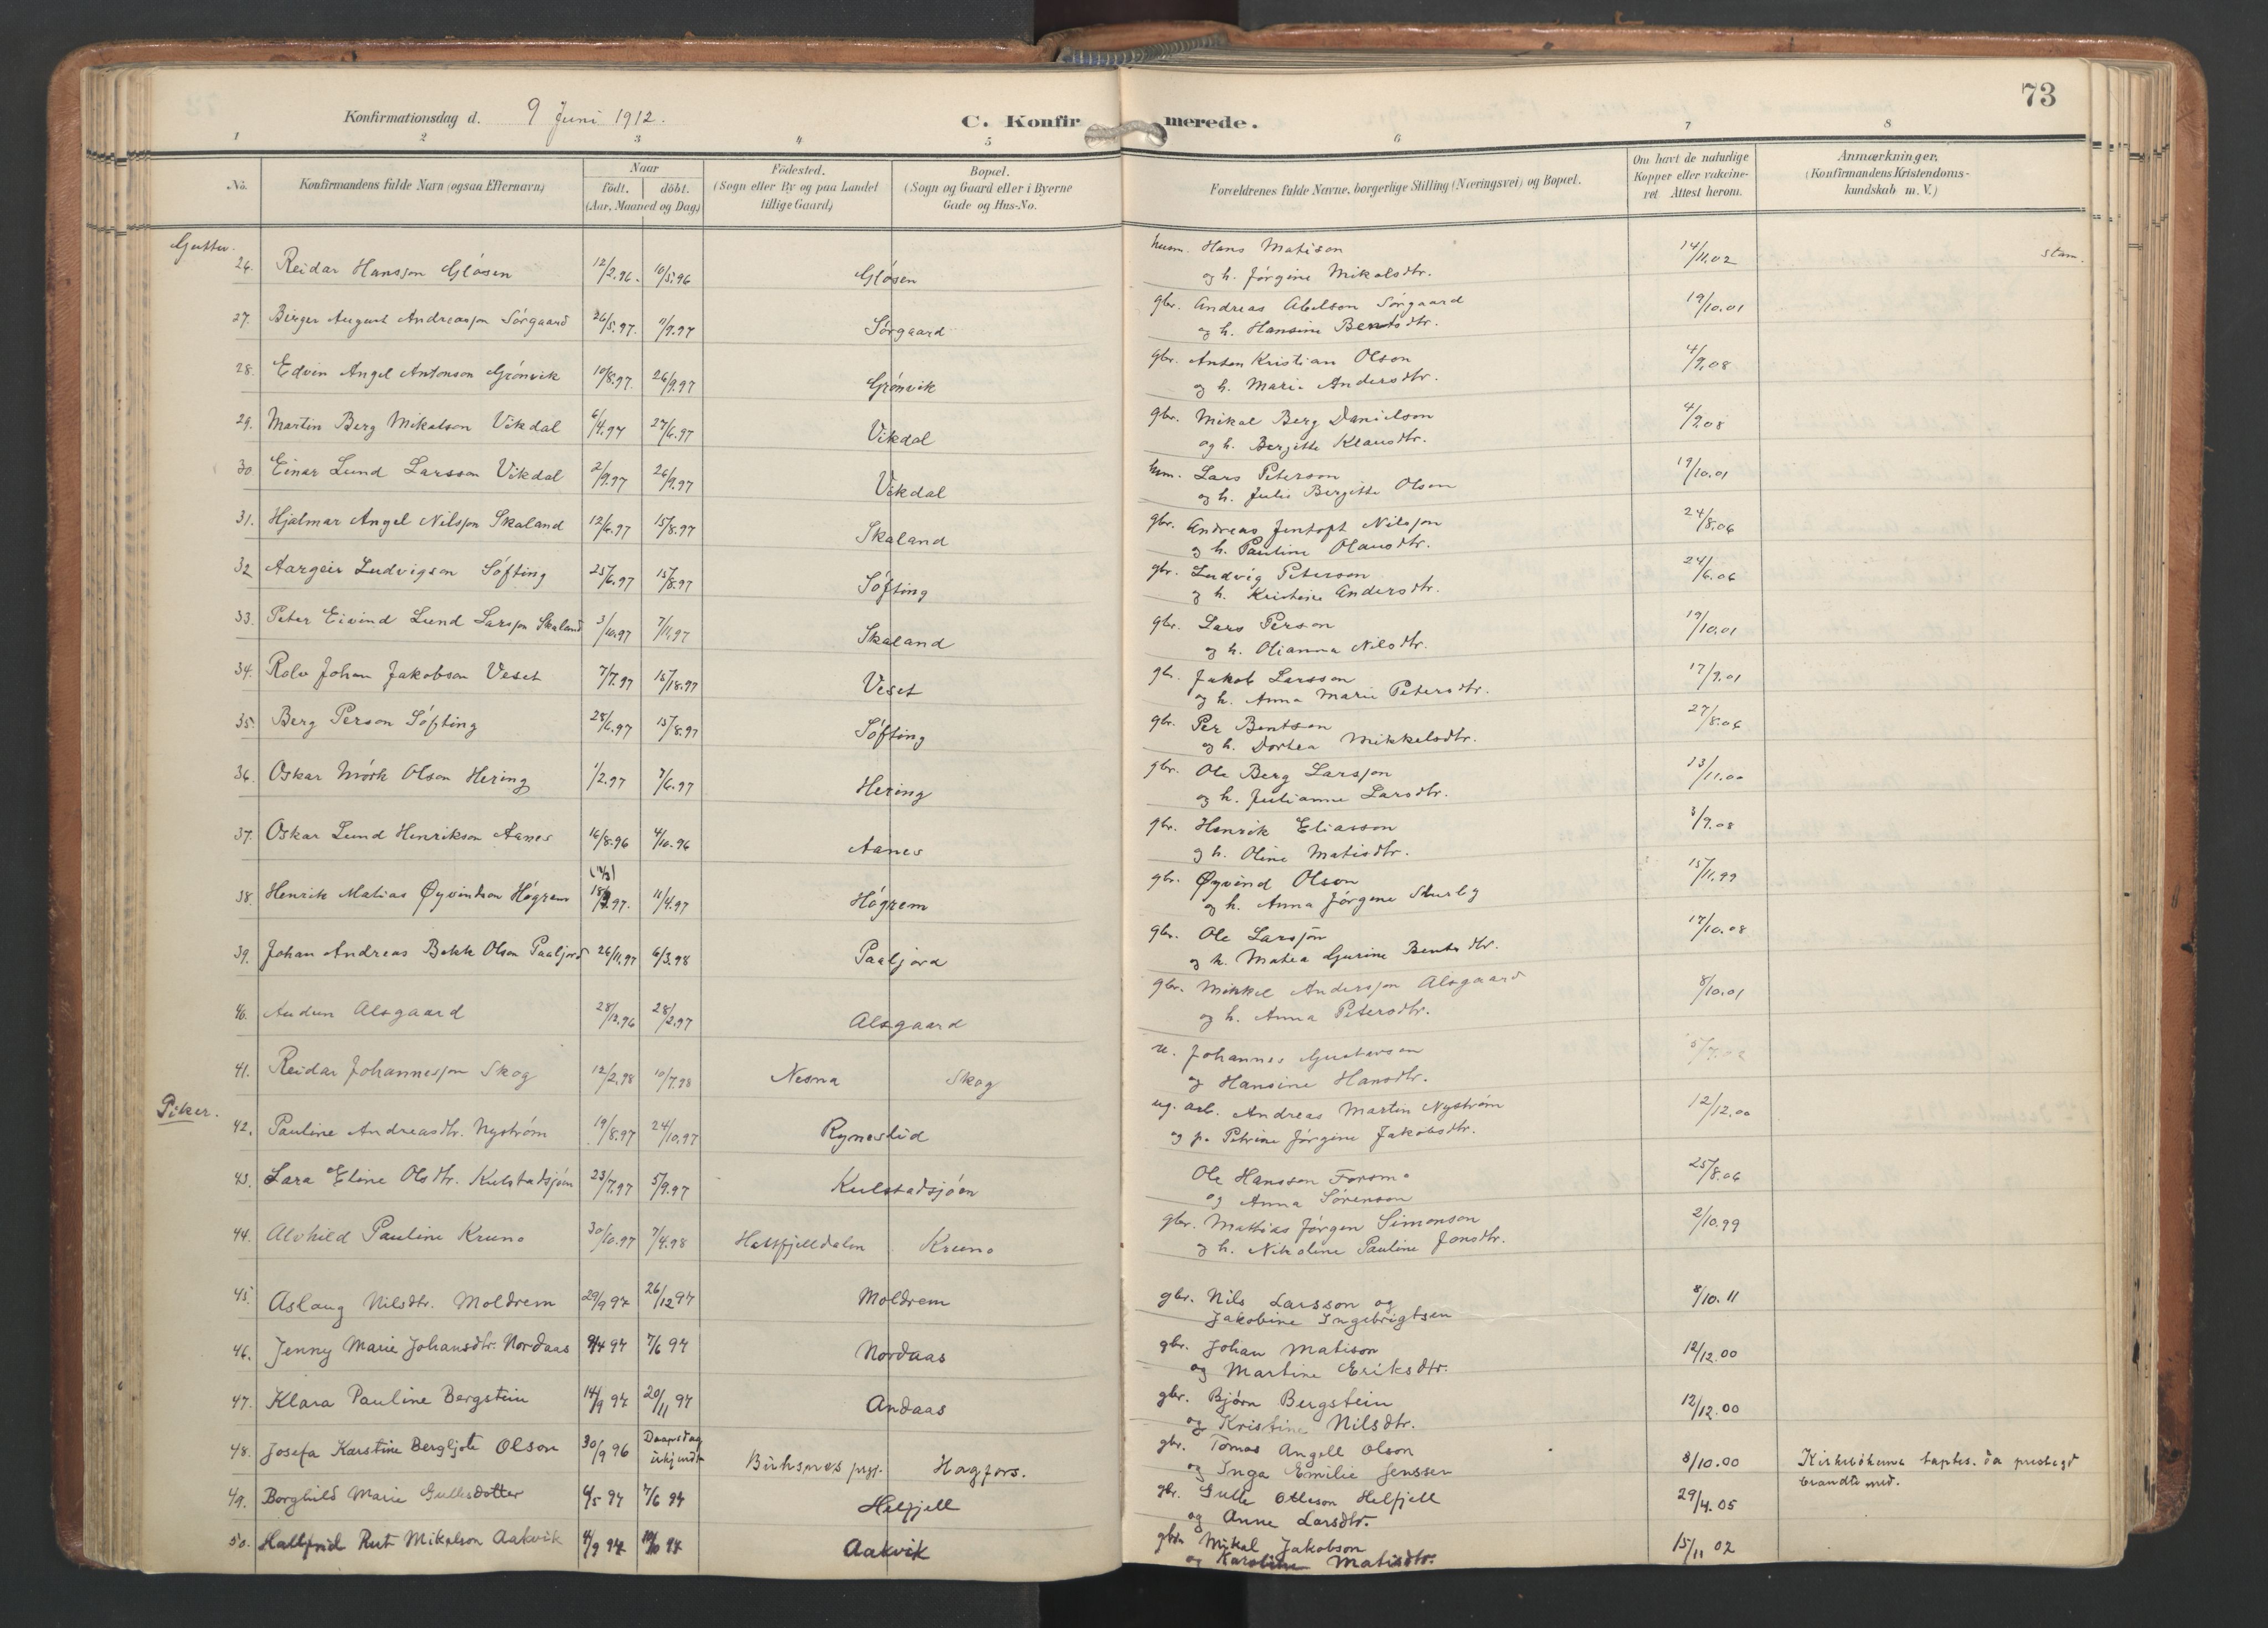 73
Konfirmationsdag d. 9 Juni 1912.
C. Konfirmerede.
1 2 3 4 5 6 7 8
No. Konfirmandens fulde Navn (ogsaa Efternavn) Naar født. døbt. (Aar, Maaned og Dag) Fødested. (Sogn eller By og paa Landet tillige Gaard) Bopæl. (Sogn og Gaard eller i Byerne Gade og Hus-No. Forældrenes fulde Navne, borgerlige Stilling (Næringsvei) og Bopæl. Om havt de naturlige Kopper eller vakcineret Attest herom. Anmærkninger, (Konfirmandens Kristendomskundskab m. V.)
Gutter.
26. Reidar Hansson Glösen 12/2.96. 10/5.96 Glösen husm. Hans Matison 14/11.02 stam.
og h. Jörgine Mikalsdtr.
27. Birger August Andreassen Sörgaard 26/5.97. 11/7.97 Sörgaard gbr. Andreas Abelson Sörgaard 19/10.01
og h. Hansine Bentsdtr.
28. Edvin Angel Antonson Grönvik 10/8.97. 26/9.97 Grönvik gbr. Anton Kristian Olson 4/9.08
og h. Marie Andersdtr.
29. Martin Berg Mikalson Vikdal 6/4.97 27/6.97 Vikdal gbr. Mikal Berg Danielson 4/9.08
og h. Bergitte Klausdtr.
30. Einar Lund Larsson Vikdal 2/9.97 26/9.97 Vikdal hum. Lars Peterson 19/10.01
og h. Julie Bergitte Olson
31. Hjalmar Angel Nilsson Skaland 12/6.97 15/8.97 Skaland gbr. Andreas Jentoft Nilsson 24/8.06
og h. Pauline Olausdtr.
32 Aargeir Ludvigson Söfting 25/6.97 15/8.97 Söfting gbr. Ludvig Peterson 24/6.06
og h. Kristine Andersdtr.
33. Peter Eivind Lund Larsson Skaland 3/10.97 7/11.97 Skaland gbr. Lars Person 19/10.01
og h. Olianna Nilsdtr.
34. Rolv Johan Jakobson Veset 7/7.97 Veset gbr. Jakob Larsson 17/9.01
og h. Anna Marie Petersdtr.
35. Berg Person Söfting 28/6.97 15/8.97 Söfting gbr. Per Bentson 27/8.06
og h. Dortea Mikkelsdtr.
36. Oskar Mörk Olson Hering 1/2.97 7/6.97 Hering gbr. Ole Berg Larsson 13/11.00
og h. Julianne Larsdtr.
37. Oskar Lund Henrikson Aanes 16/8.96 4/10.96 Aanes gbr. Henrik Eliasson 3/9.08
og h. Oline Matisdtr.
38 Henrik Matias Øyvindson Högrem 11/4.97 Högrem gbr. Øyvind Olson 15/11.99
og h. Anna Jörgine
39. Johan Andreas Bekk Olson Paaljord 26/11.97 6/3.98 Paaljord gbr. Ole Larsson 17/10.08
og h. Matea Gurine Bentsdtr.
40. Audun Alsgaard 28/12.96 28/2.97 Alsgaard gbr. Mikkel Andersson Alsgaard 8/10.01
og h. Anna Petersdtr.
41. Reidar Johannesson Skog 12/2.98 10/7.98 Nesna Skog u. Johannes Gustavson
og Hansine Hansdtr.
Piker.
42. Pauline Andreasdtr. Nyström 19/8.97 24/10.97 Ryneslid ug. arb. Andreas Martin Nyström 12/12.00
og p. Petrine Jörgine Jakobsdtr.
43. Lara Eline Olsdtr. Kulstadsjöen 23/7.97 5/9.97 Kulstadsjöen Ole Hansson Forsmo 25/8.06
og Anna Sörenson
44. Alvhild Pauline Kruno 30/10.97 7/4.98 Hatfjelldalen Kruno gbr. Mathias Jörgen Simonson 2/10.99
og h. Nikoline Pauline Jonsdtr.
45. Aslaug Nilsdtr. Moldrem 29/9 97 26/12 97 Moldrem gbr. Nils Larsson og 8/10.11
Jakobine Ingebrigtsen
46. Jenny Marie Johansdtr. Nordaas 9/4 97 7/6 97 Nordaas gbr. Johan Matison 12/12.00
og Martine Eriksdtr.
47. Klara Pauline Bergstein 14/9 97 20/11 97 Andaas gbr. Bjørn Bergstein 12/12.00
og Kristine Nilsdtr.
48. Josefa Karstine Bergljote Olson 30/9 96 Daapsdag ukjendt Hagfors. gbr. Tomas Angell Olson 8/10.00 Kirkebökerne taptes. da prestegd
og Inga Emilie Jenssen brandte ned.
49. Borghild Marie Gullesdotter 6/5 97 7/6 97 Helfjell gbr. Gulle Otteson Helfjell 29/4.05
og Anne Larsdtr.
50. Hallfrid Rut Mikalson Aakvik 4/9 97 10/10 97 Aakvik gbr. Mikal Jakobson 15/11 02
og Karoline Matisdtr.